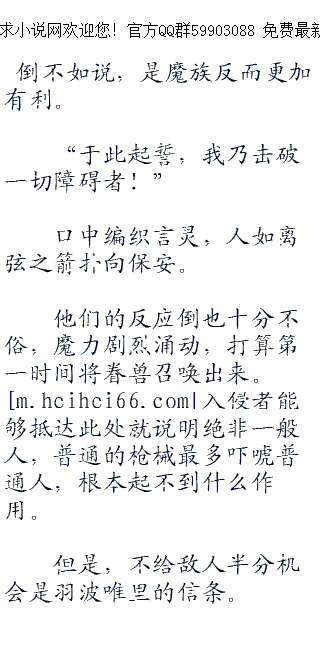 求小说网欢迎您! 官方QQ群59903088 免费最新
倒不如说，是魔族反而更加
有利。
“于此起誓，我乃击破
一切障碍者！”
口中编织言灵，人如离
弦之箭扑向保安。
他们的反应倒也十分不
俗，魔力剧烈涌动，打算第
一时间将眷兽召唤出来。
[m.hcihci66.com|入侵者能
够抵达此处就说明绝非一般
人，普通的枪械最多吓唬普
通人，根本起不到什么作
用。
但是，不给敌人半分机
会是羽波唯里的信条。